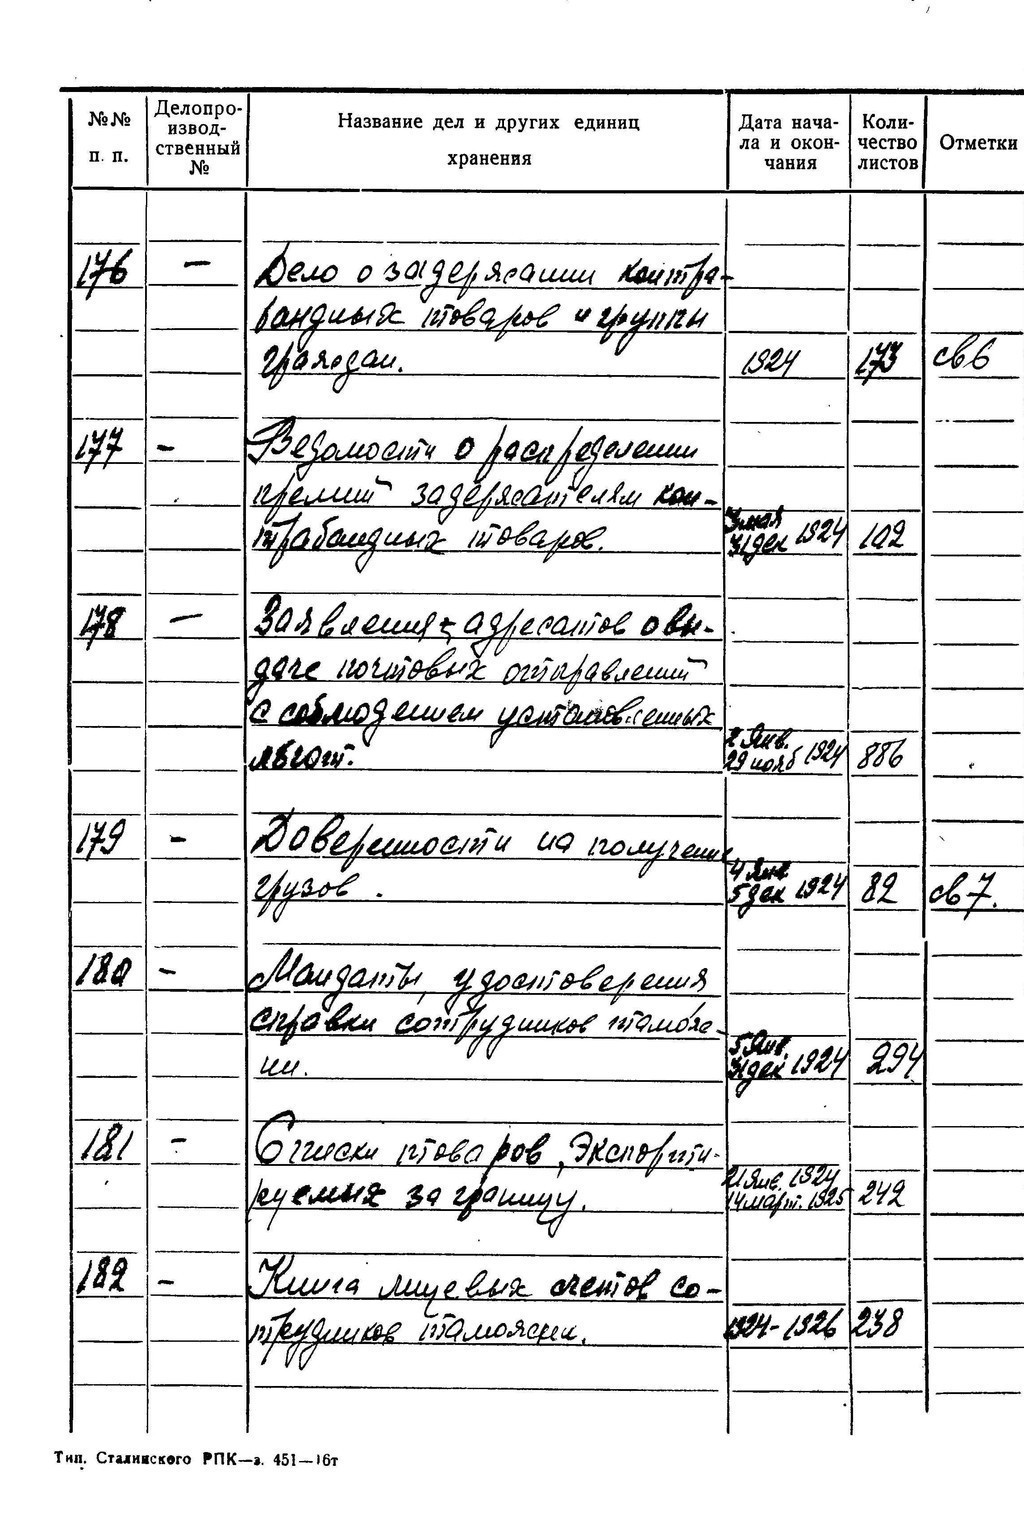 №№ п. п.
Делопроизводственный №
Название дел и других единиц хранения
Дата начала и окончания
Количество листов
Отметки
176 — Дело о задержании контра-
бандных товаров и группы
граждан. 1924 173 св 6
177 — Ведомости о распределении
премий задержателям кон- 3 мая
трабандных товаров. 31 дек 1924 102
178 — Заявления адресатов о вы-
даче почтовых отправлений
с соблюдением установленных 2 Янв.
льгот. 29 нояб 1924 886
179 — Доверенности на получение 4 Янв
грузов. 5 дек 1924 82 св 7.
180 — Мандаты, удостоверения
справки сотрудников тамож- 5 Янв.
ни. 31 дек 1924 294
181 — Списки товаров, экспорти- 21 Янв. 1924
руемых за границу. 14 март. 1925 242
182 — Книга лицевых счетов со-
трудников таможен. 1924-1926 238
Тип. Сталинского РПК—з. 451—16т